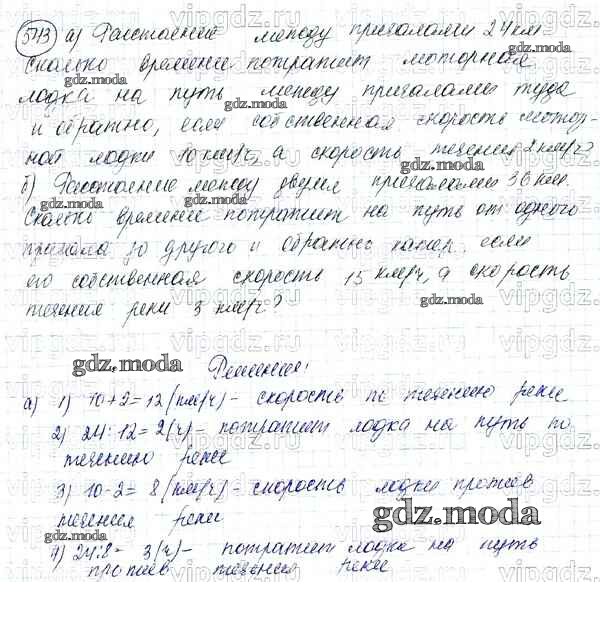 543 а) Расстояние между причалами 24 км
Сколько времени потратит моторная
лодка на путь между причалами туда
и обратно, если собственная скорость мотор-
ной лодки 10 км/ч, а скорость течения 2 км/ч?
б) Расстояние между двумя причалами 36 км.
Сколько времени потратит на путь от одного
причала до другого и обратно катер, если
его собственная скорость 15 км/ч, а скорость
течения реки 3 км/ч?
gdz.moda
Решения:
а) 1) 10+2=12 (км/ч) - скорость по течению реки
2) 24:12=2(ч) - потратит лодка на путь по
течению реки
3) 10-2=8 (км/ч) - скорость лодки против
течения реки
gdz.moda
4) 24:8= 3(ч) - потратит лодка на путь
против течения реки